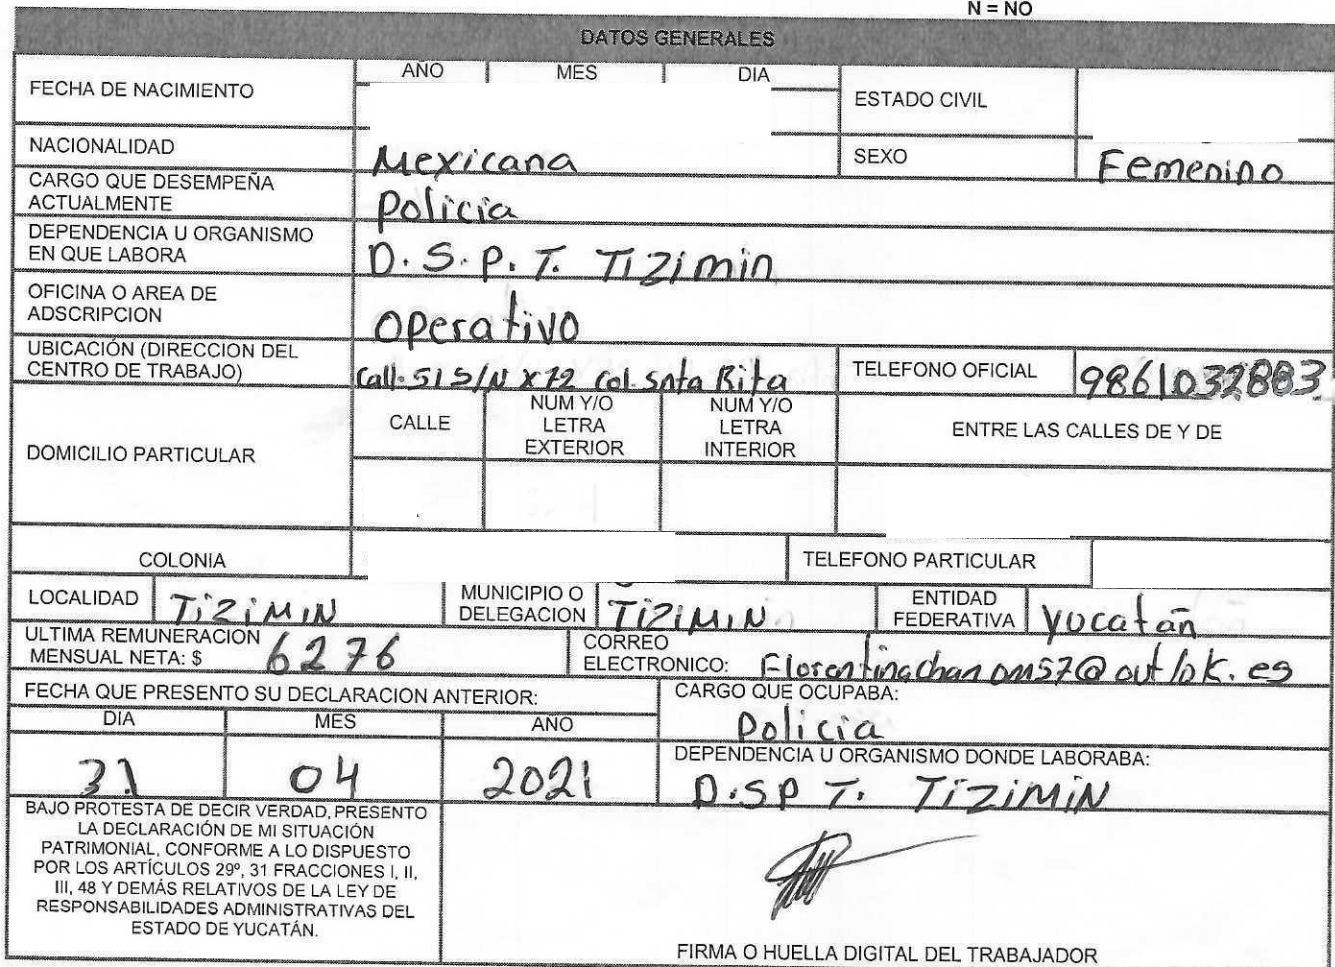 N = NO
DATOS GENERALES
FECHA DE NACIMIENTO
AÑO MES DIA
ESTADO CIVIL
NACIONALIDAD Mexicana SEXO Femenino
CARGO QUE DESEMPEÑA
ACTUALMENTE
Policia
DEPENDENCIA U ORGANISMO
EN QUE LABORA
D. S. P. T. Tizimin
OFICINA O AREA DE
ADSCRIPCION
Operativo
UBICACIÓN (DIRECCION DEL
CENTRO DE TRABAJO)
Call. 51 S/N x 72 Col. Snta Rita
TELEFONO OFICIAL 9861032883
DOMICILIO PARTICULAR
CALLE
NUM Y/O
LETRA
EXTERIOR
NUM Y/O
LETRA
INTERIOR
ENTRE LAS CALLES DE Y DE
COLONIA TELEFONO PARTICULAR
LOCALIDAD TiziMiN
MUNICIPIO O
DELEGACION
TiziMiN
ENTIDAD
FEDERATIVA
Yucatañ
ULTIMA REMUNERACION
MENSUAL NETA: $ 6276
CORREO
ELECTRONICO: Florentinachanom57@outlok.es
FECHA QUE PRESENTO SU DECLARACION ANTERIOR:
DIA MES AÑO
31 04 2021
CARGO QUE OCUPABA:
Policia
DEPENDENCIA U ORGANISMO DONDE LABORABA:
D.SP T. TiziMiN
BAJO PROTESTA DE DECIR VERDAD, PRESENTO
LA DECLARACIÓN DE MI SITUACIÓN
PATRIMONIAL, CONFORME A LO DISPUESTO
POR LOS ARTÍCULOS 29º, 31 FRACCIONES I, II,
III, 48 Y DEMÁS RELATIVOS DE LA LEY DE
RESPONSABILIDADES ADMINISTRATIVAS DEL
ESTADO DE YUCATÁN.
FIRMA O HUELLA DIGITAL DEL TRABAJADOR